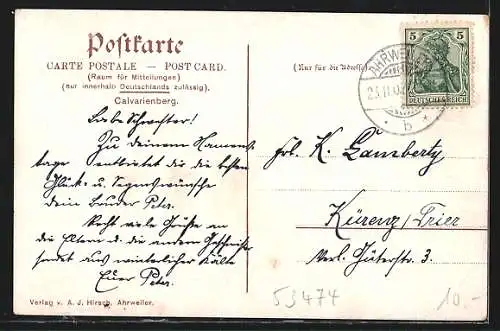 Postkarte
CARTE POSTALE — POST CARD.
(Raum für Mitteilungen)
(nur innerhalb Deutschlands zulässig).
Calvarienberg.
Liebe Schwester!
Zu deinem Namens-
tage entbietet dir die besten
Glück- u. Segenswünsche
dein Bruder Peter.
Recht viele Grüße an
die Eltern u. die andern Geschwister
sendet aus winterlicher Kälte
Euer Peter.
Verlag v. A. J. Hirsch, Ahrweiler.
(Nur für die Adresse)
AHRWEILER
b
5 5
DEUTSCHES REICH
Frl. K. Lamberty
Kürenz/Trier
Verl. Güterstr. 3.
53474
10.-